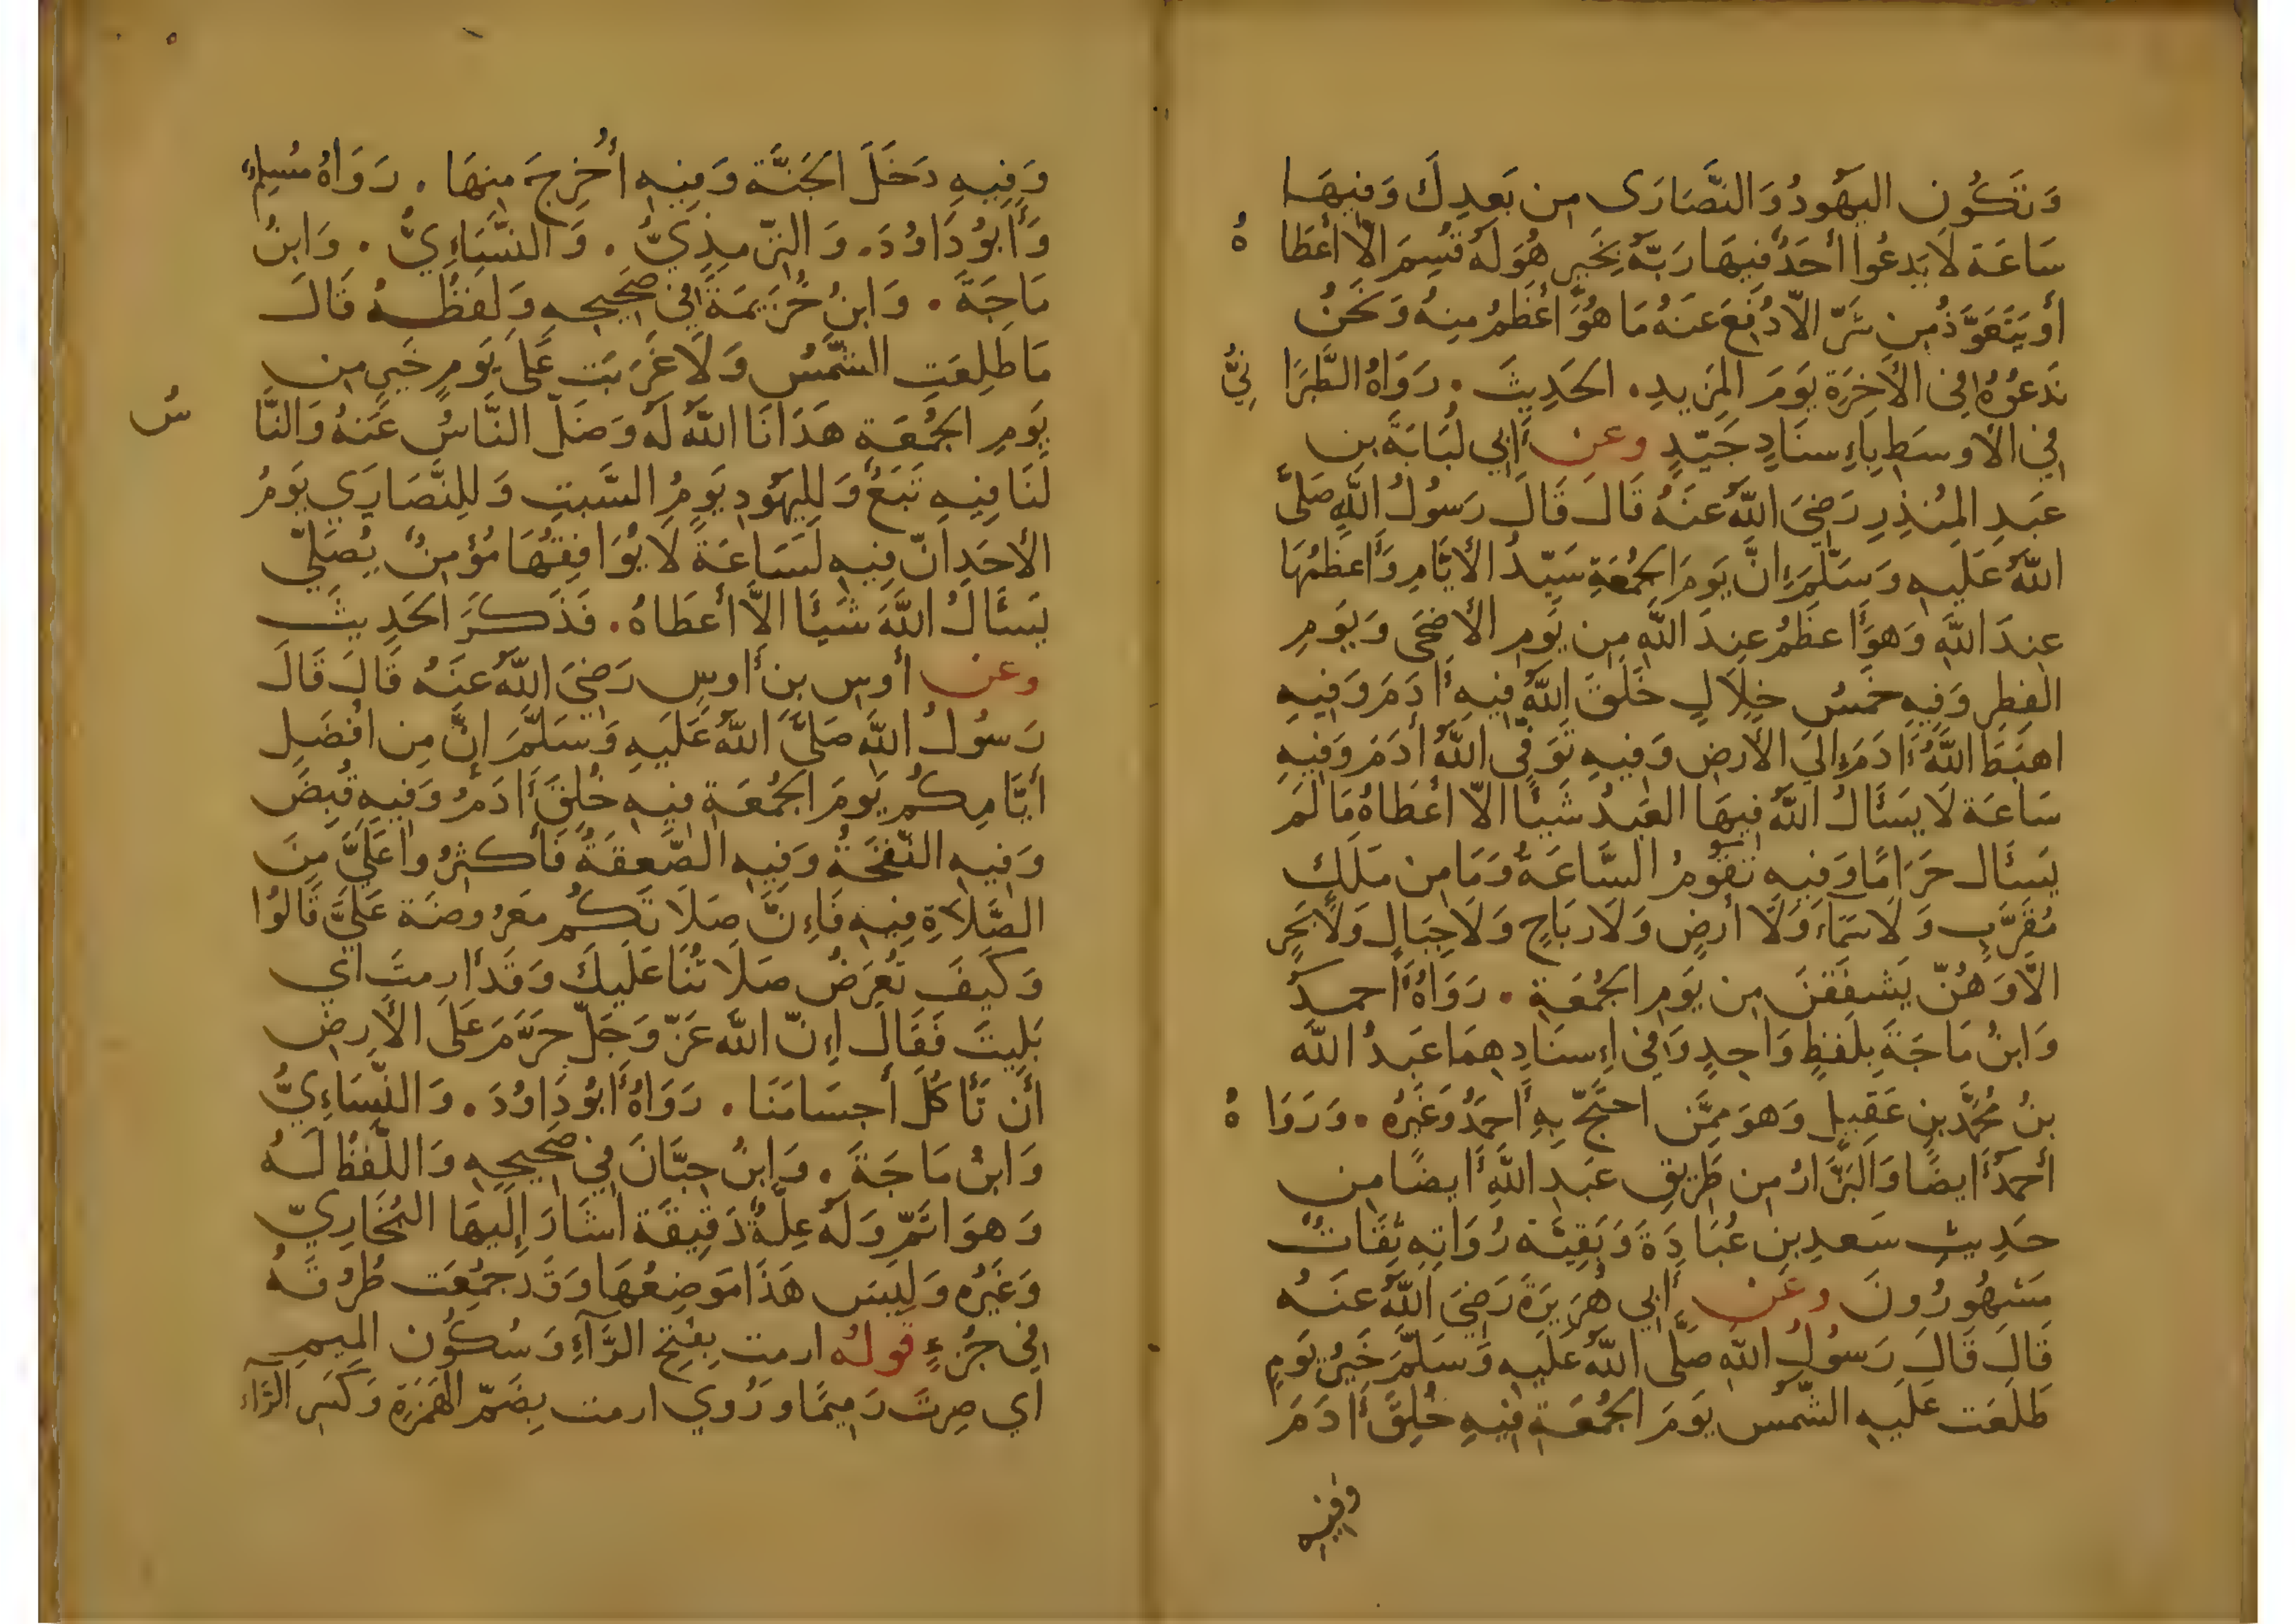 وَتَكُون اليَهُودُ وَالنَّصَارَى مِن بَعدِكَ وَفِيهَا
سَاعَة لَا يَدعُوا أَحَدٌ فِيهَا رَبَّهُ بِخَيرٍ هُوَ لَهُ قُسِمَ الاّ أعْطَاهُ
أو يَتَعَوَّذُ مِن شَرٍّ الاّ دُفِعَ عَنهُ مَا هُوَ أعْظَمُ مِنهُ وَنَحنُ
نَدعُوهُ فِي الأخِرَةِ يَومَ المَزِيدِ . الحَدِيثَ . رَوَاهُ الطَّبَرَانِيُّ
فِي الأوسَطِ بِاءِسنَادٍ جَيّدٍ وعن أَبِي لُبَابَةَ بنِ
عَبدِ المُنذِرِ رَضِيَ اللّهُ عَنهُ قَالَ قَالَ رَسُولُ اللّهِ صَلَّى
اللّهُ عَلَيهِ وَسَلَّمَ إنَّ يَومَ الجُمُعَةِ سَيّدُ الأيَّامِ وَأعظَمُهَا
عِندَ اللّهِ وَهوَ أعظَمُ عِندَ اللّهِ مِن يَومِ الأضحَى وَيَومِ
الفِطرِ وَفِيهِ خَمسُ خِلَالٍ خَلَقَ اللّهُ فِيهِ أدَمَ وَفِيهِ
اهبَطَ اللّهُ أدَمَ إلَى الأرضِ وَفِيهِ تَوَفَّى اللّهُ أدَمَ وَفِيهِ
سَاعَة لَا يَسَئَالُ اللّهُ فِيهَا العَبدُ شَيئًا الاّ اعْطَاهُ مَا لَم
يَسَئَال حَرَامًا وَفِيهِ تَقُومُ السَّاعَةُ وَمَا مِن مَلَكٍ
مُقَرَّبٍ وَلَا سَمَاءٍ وَلَا أرضٍ وَلَا رِيَاحٍ وَلَا جِبَالٍ وَلَا بَحرٍ
الاّ وَهُنّ يَشفِقنَ مِن يَومِ الجُمُعَةِ . رَوَاهُ أحمدُ
وَابنُ مَاجَةَ بِلَفظٍ وَاحِدٍ وَفِي اِءسنَادِهِمَا عَبدُ اللّه
بنُ مُحَمَّد بنِ عَقِيلٍ وَهوَ مِمَّن احتَجَّ بِهِ أحمَدُ وَغَيرُه . وَرَوَاهُ
أحمَدُ أيضًا وَالبَزَّارُ مِن طَرِيقِ عَبدِ اللّهِ أيضًا مِن
حَدِيثِ سَعدِ بنِ عُبَادَةَ وَبَقِيَّة رُوَاتِهِ ثِقَاتٌ
مَشهُورُونَ وعَن أَبِي هُرَيرَةَ رَضِيَ اللّهُ عَنهُ
قَالَ قَالَ رَسُولُ اللّهِ صَلَّى اللّهُ عَلَيهِ وَسَلَّمَ خَيرُ يَومٍ
طَلَعَت عَلَيهِ الشّمسُ يَومَ الجُمُعَةِ فِيهِ خُلِقَ أدَمَ
وفيه
وَفِيهِ دَخَلَ الجَنَّةَ وَفِيهِ أُخرِجَ مِنهَا . رَوَاهُ مُسلِمٌ
وَأبُو دَاوُدَ . وَالتِّرمِذِيُّ . وَالنَّسَاءِيُّ . وَابنُ
مَاجَةَ . وَابنُ خُزَيمَةَ فِي صَحِيحِهِ وَلَفظُهُ قَالَ
مَا طَلِعَتِ الشّمسُ وَلَا غَرَبَت عَلَى يَومٍ خَيرٍ مِن
يَومِ الجُمُعَةِ هَدَانَا اللّهُ لَهُ وَضَلَّ النَّاسُ عَنهُ وَالنَّاسُ
لَنَا فِيهِ تَبَعٌ وَلِليَهُودِ يَومُ السَّبتِ وَلِلنَّصَارَي يَومُ
الأحَدِ انّ فِيهِ لَسَاعَةً لَا يُوَافِقُهَا مُؤمِنٌ يُصَلِّي
يَسَئَالُ اللّهَ شَيئًا الاّ أعطَاهُ . فَذَكَرَ الحَدِيثَ
وعن أوسِ بنِ أوسٍ رَضِيَ اللّهُ عَنهُ قَالَ قَالَ
رَسُولُ اللّهِ صَلَّى اللّهُ عَلَيهِ وَسَلَّمَ إنَّ مِن افضَلِ
أيَّامِكُم يَومَ الجُمُعَةِ فِيهِ خُلِقَ أدَمُ وَفِيهِ قُبِضَ
وَفِيهِ النَّفخَةُ وَفِيهِ الصَّعقَةُ فَأكثِرُوا عَلَيَّ مِنَ
الصَّلَاةِ فِيهِ فَاءِنَّ صَلَاتَكُم مَعرُوضَة عَلَيَّ قَالُوا
وَكَيفَ تُعرَضُ صَلَاتُنَا عَلَيكَ وَقَد أرِمتَ اي
بَلِيتَ فَقَالَ اِءنّ اللّهَ عَزّ وَجَلّ حَرَّمَ عَلَى الأرضِ
أن تَأكُلَ أجسَامَنَا . رَوَاهُ أبُو دَاوُدَ . وَالنَّسَاءِيُّ
وَابنُ مَاجَةَ . وَابنُ حِبَّانَ فِي صَحِيحِهِ وَاللَّفظُ لَهُ
وَهوَ اتَمّ وَلَهُ عِلَّةٌ دَقِيقَة أشَارَ إلَيهَا البُخَارِيّ
وَغَيرُه وَلَيسَ هَذَا مَوضِعُهَا وَقَد جُمِعَت طُرُقُهُ
فِي جُزءٍ قولُه ارمت بِفَتحِ الرَّآءِ وَسُكُون المِيمِ
أي صِرتَ رَمِيمًا وَرُوي ارمت بِضَمّ الهَمزَةِ وَكَسرِ الرَّاء